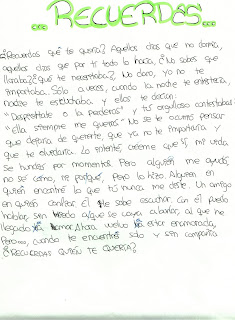 ...RECUERDAS...
¿Recuerdas qué te quería? Aquellos días que no dormía,
aquellos días que por ti todo lo hacía, ¿No sabes que
lloraba? ¿qué te necesitaba? No claro, yo no te
importaba. Sólo a veces, cuando la noche te entristecía,
nadie te escuchaba y ellos te decían:
"Despiértate o la perderás" y tus orgullosos contestabas:
"ella siempre me querrá". No se te ocurrió pensar
que dejaría de quererte, que ya no te importaría y
que te olvidaría. Lo intenté, créeme que sí, mi vida
se hundía por momentos. Pero alguien me ayudó,
no sé cómo, ni porqué, pero lo hizo. Alguien en
quien encontré lo que tú nunca me diste. Un amigo
en quien confiar, él sabe escuchar. Con él puedo
hablar, sin miedo a que se vaya a burlar, al que he
llegado a amar. Ahora vuelvo a estar enamorada,
Pero..., cuando te encuentres solo y sin compañía
¿RECUERDAS QUIÉN TE QUERÍA?